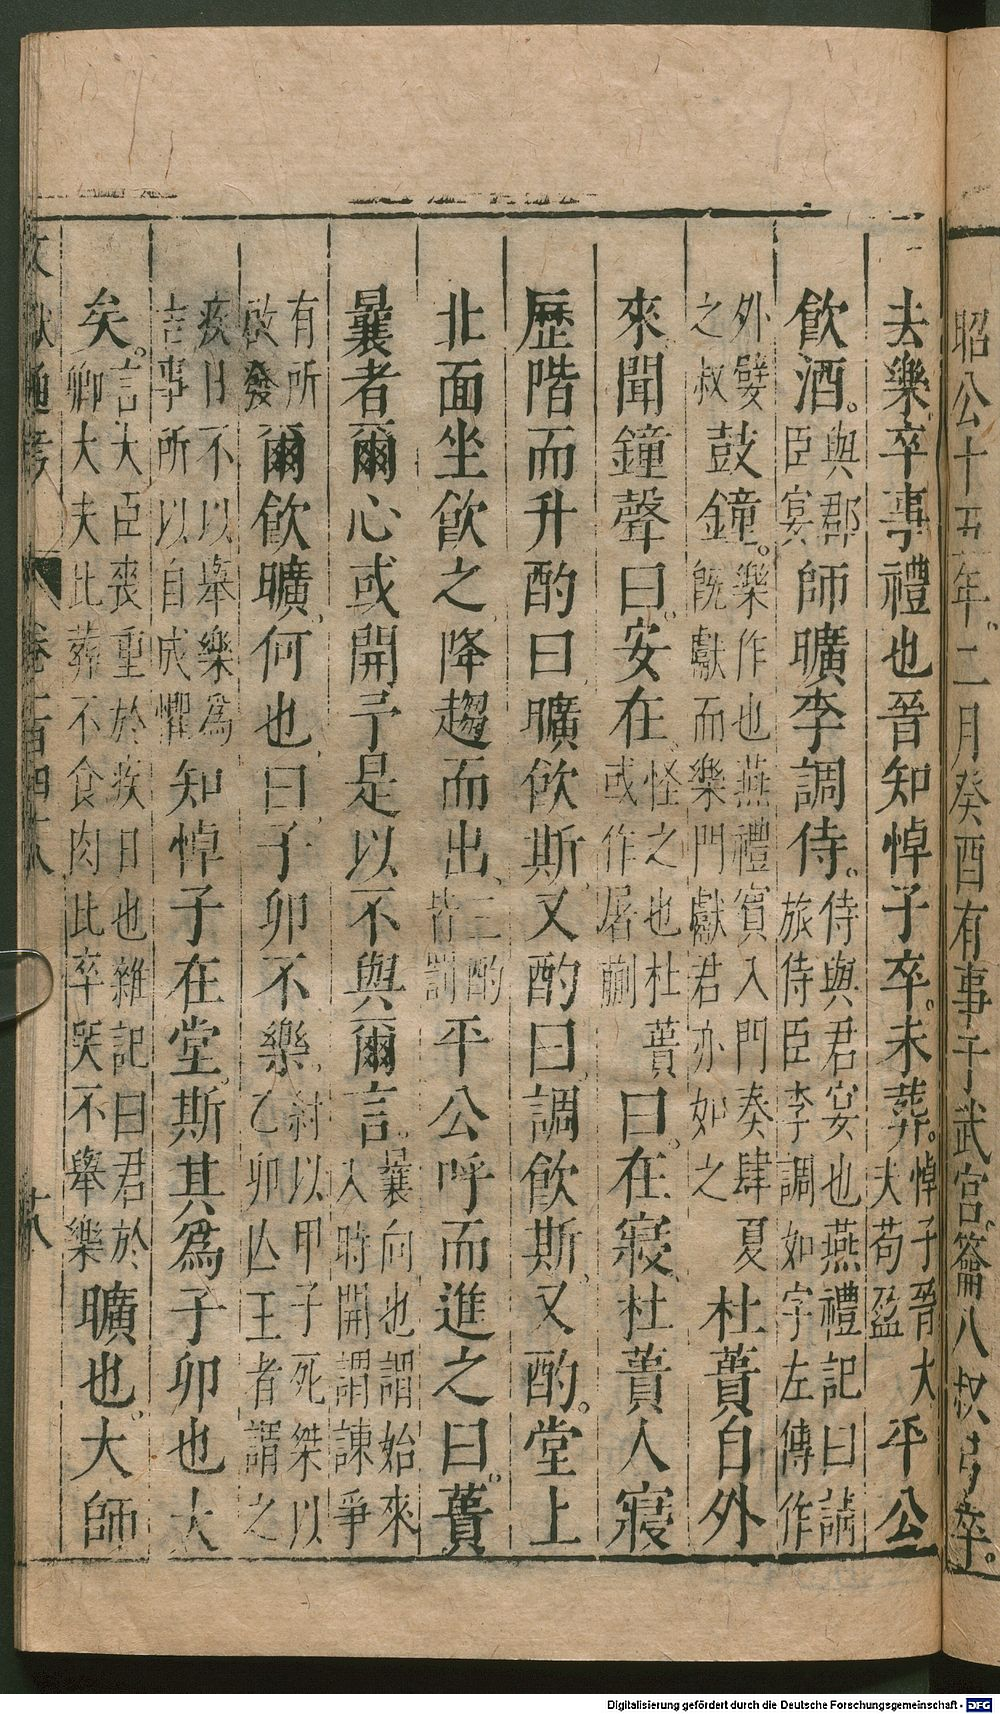 昭公十五年。二月癸酉有事于武宮。籥入叔弓卒。
去樂。卒事禮也晉知悼子卒。未葬。悼子晉大夫荀盈平公
飲酒。與群臣宴師曠李調侍。侍與君宴也燕禮記曰請旅侍臣李調如字左傳作
外嬖之叔鼓鐘。樂作也燕禮賓入門奏肆夏既獻而樂闋獻君亦如之杜蕢自外
來聞鐘聲曰。安在、怪之也杜蕢或作屠蒯曰。在寢、杜蕢入寢
歷階而升酌曰曠飲斯、又酌曰、調飲斯、又酌。堂上
北面坐飲之、降趨而出、三酌皆罰平公呼而進之曰。蕢
曩者爾心或開予是以不與爾言。曩向也謂始來入時開謂諫爭
有所啟發爾飲曠、何也、曰、子卯不樂、紂以甲子死桀以乙卯亡王者謂之
疾日不以舉樂為吉事所以自戒懼知悼子在堂。斯其為子卯也大
矣。言大臣喪重於疾日也雜記曰君於卿大夫比葬不食肉比卒哭不舉樂曠也。大師
文獻通考 卷一百四十八 十八
Digitalisierung gefördert durch die Deutsche Forschungsgemeinschaft - DFG